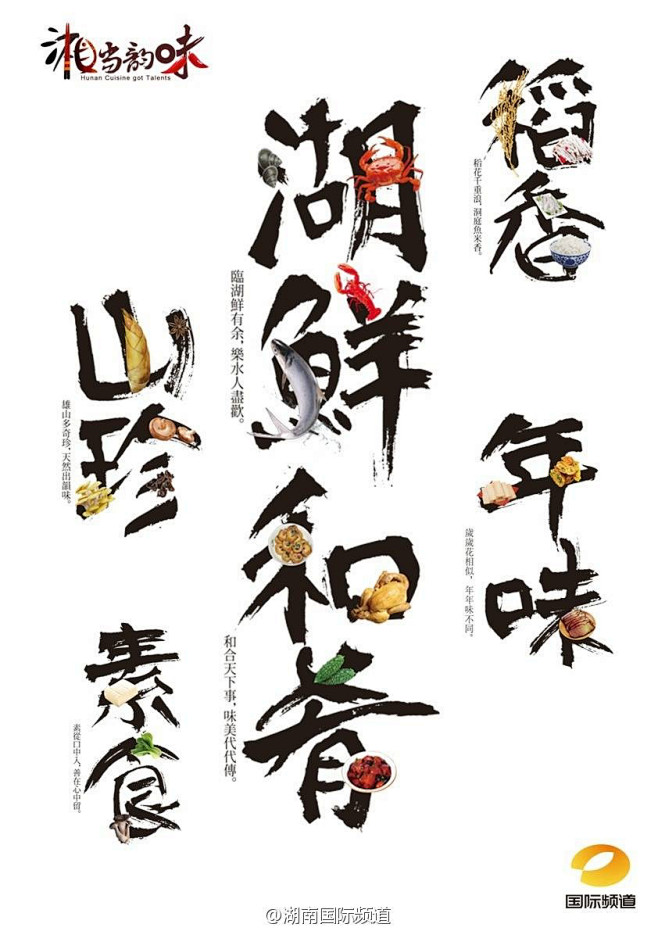 湘当韵味
Hunan Cuisine got Talents
稻香
稻花千重浪，洞庭魚米香。
湖鮮
臨湖鮮有余，樂水人盡歡。
山珍
雄山多奇珍，天然出韻味。
年味
歲歲花相似，年年味不同。
和肴
和合天下事，味美代代傳。
素食
素從口中入，善在心中留。
国际频道
@湖南国际频道